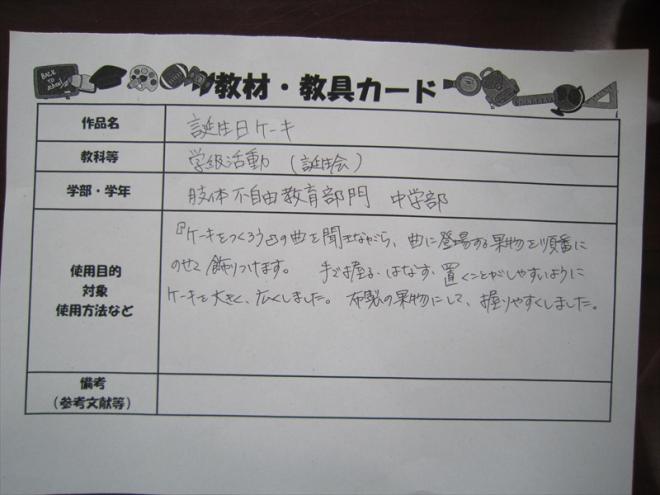 BACK TO school
教材・教具カード
作品名
誕生日ケーキ
教科等
学級活動 (誕生会)
学部・学年
肢体不自由教育部門 中学部
使用目的
対象
使用方法など
『ケーキをつくろう』の曲を聞きながら、曲に登場する果物を順番に
のせて飾りつけます。 手で握る・はなす、置くことがしやすいように
ケーキを大きく、広くしました。 布製の果物にして、握りやすくしました。
備考
(参考文献等)